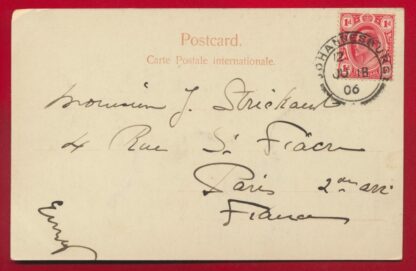 Postcard.
Carte Postale internationale.
1d 1d
JOHANNESBURG
2
JU 18
06
Monsieur J. Strickaert
4 Rue St Fiacre
Paris 2me arr.
France